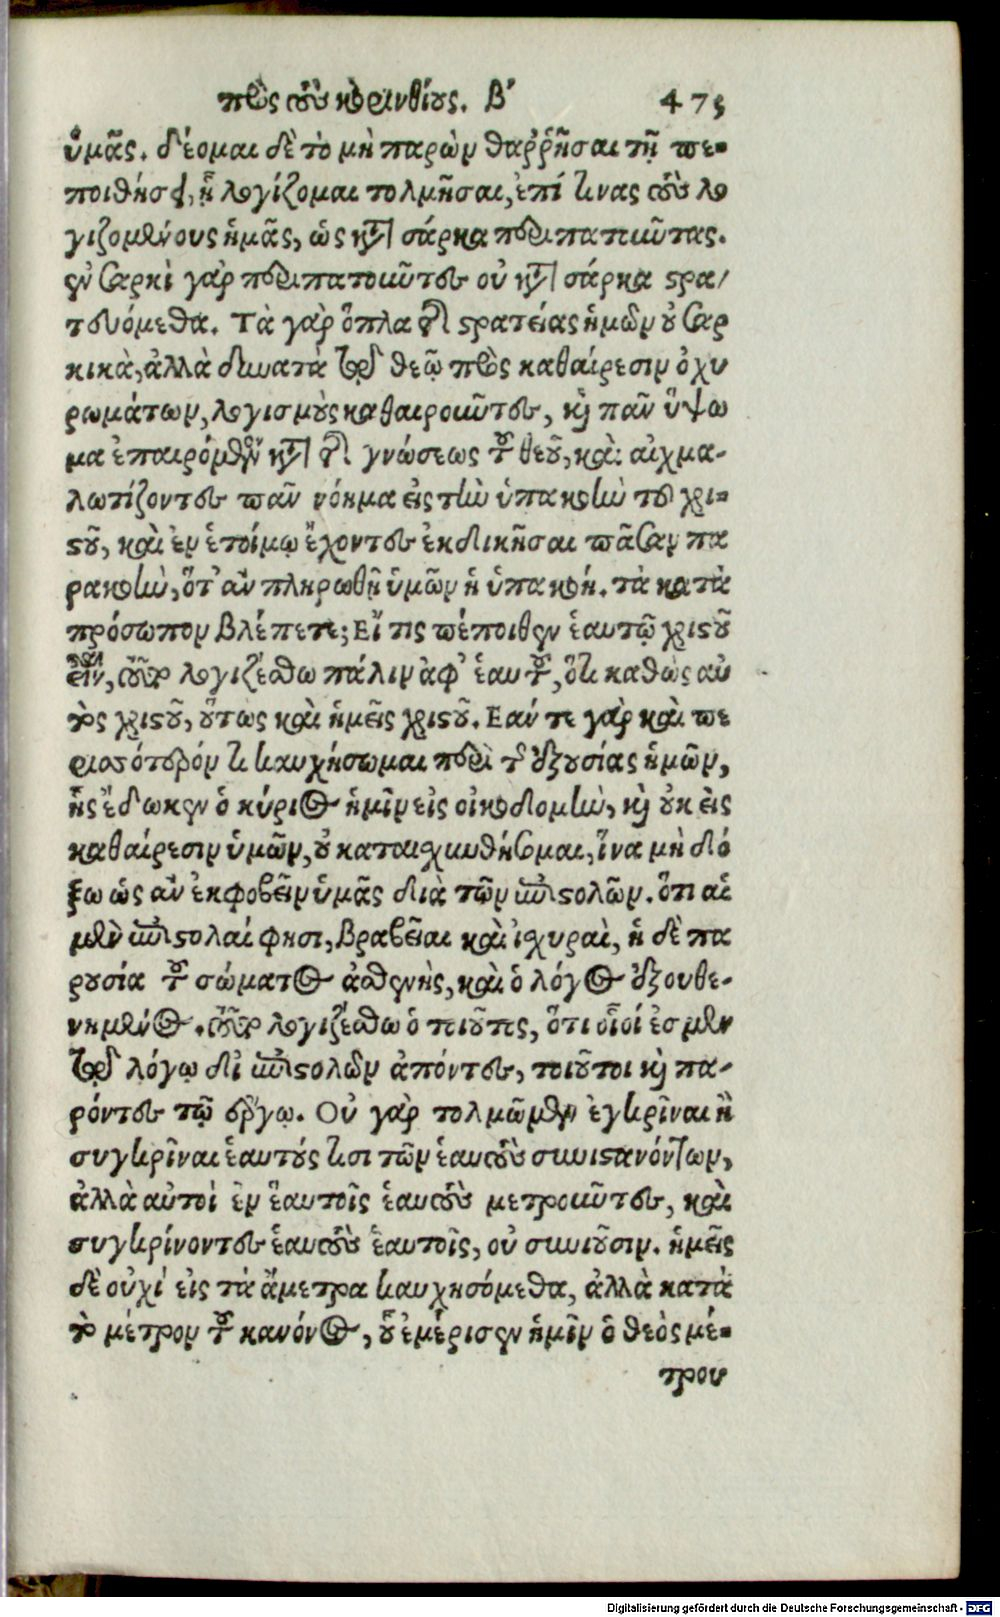 πρὸς τοὺς κορινθίους. Β΄ 475
ὑμᾶς. δέομαι δὲ τὸ μὴ παρὼν θαῤῥῆσαι τῇ πε-
ποιθήσει, ᾗ λογίζομαι τολμῆσαι, ἐπί τινας τοὺς λο
γιζομένους ἡμᾶς, ὡς κατὰ σάρκα περιπατοῦντας.
ἐν σαρκὶ γὰρ περιπατοῦντες οὐ κατὰ σάρκα στρα/
τευόμεθα. Τὰ γὰρ ὅπλα τῆς στρατείας ἡμῶν οὐ σαρ
κικὰ, ἀλλὰ δυνατὰ τῷ θεῷ πρὸς καθαίρεσιν ὀχυ
ρωμάτων, λογισμοὺς καθαιροῦντες, καὶ πᾶν ὕψω
μα ἐπαιρόμενον κατὰ τῆς γνώσεως τοῦ θεοῦ, καὶ αἰχμα-
λωτίζοντες πᾶν νόημα εἰς τὴν ὑπακοὴν τοῦ χρι-
στοῦ, καὶ ἐν ἑτοίμῳ ἔχοντες ἐκδικῆσαι πᾶσαν πα
ρακοὴν, ὅτ' ἂν πληρωθῇ ὑμῶν ἡ ὑπακοή. τὰ κατὰ
πρόσωπον βλέπετε; Εἴ τις πέποιθεν ἑαυτῷ χριστοῦ
εἶναι, τοῦτο λογιζέσθω πάλιν ἀφ' ἑαυτοῦ, ὅτι καθὼς αὐ
τὸς χριστοῦ, οὕτως καὶ ἡμεῖς χριστοῦ. Εάν τε γὰρ καὶ πε
ρισσότερόν τι καυχήσωμαι περὶ τῆς ἐξουσίας ἡμῶν,
ἧς ἔδωκεν ὁ κύριος ἡμῖν εἰς οἰκοδομὴν, καὶ οὐκ εἰς
καθαίρεσιν ὑμῶν, οὐ καταισχυνθήσομαι, ἵνα μὴ δό
ξω ὡς ἂν ἐκφοβεῖν ὑμᾶς διὰ τῶν ἐπιστολῶν. ὅτι αἱ
μὲν ἐπιστολαί φησι, βραβεῖαι καὶ ἰσχυραὶ, ἡ δὲ πα
ρουσία τοῦ σώματος ἀσθενὴς, καὶ ὁ λόγος ἐξουθε-
νημένος. τοῦτο λογιζέσθω ὁ τοιοῦτος, ὅτι οἷοί ἐσμεν
τῷ λόγῳ δι' ἐπιστολῶν ἀπόντες, τοιοῦτοι καὶ πα-
ρόντες τῷ ἔργῳ. Οὐ γὰρ τολμῶμεν ἐγκρῖναι ἢ
συγκρῖναι ἑαυτούς τισι τῶν ἑαυτοὺς συνιστανόντων,
ἀλλὰ αὐτοὶ ἐν ἑαυτοῖς ἑαυτοὺς μετροῦντες, καὶ
συγκρίνοντες ἑαυτοὺς ἑαυτοῖς, οὐ συνιοῦσιν. ἡμεῖς
δὲ οὐχὶ εἰς τὰ ἄμετρα καυχησόμεθα, ἀλλὰ κατὰ
τὸ μέτρον τοῦ κανόνος, οὗ ἐμέρισεν ἡμῖν ὁ θεὸς μέ-
τρου
Digitalisierung gefördert durch die Deutsche Forschungsgemeinschaft - DFG